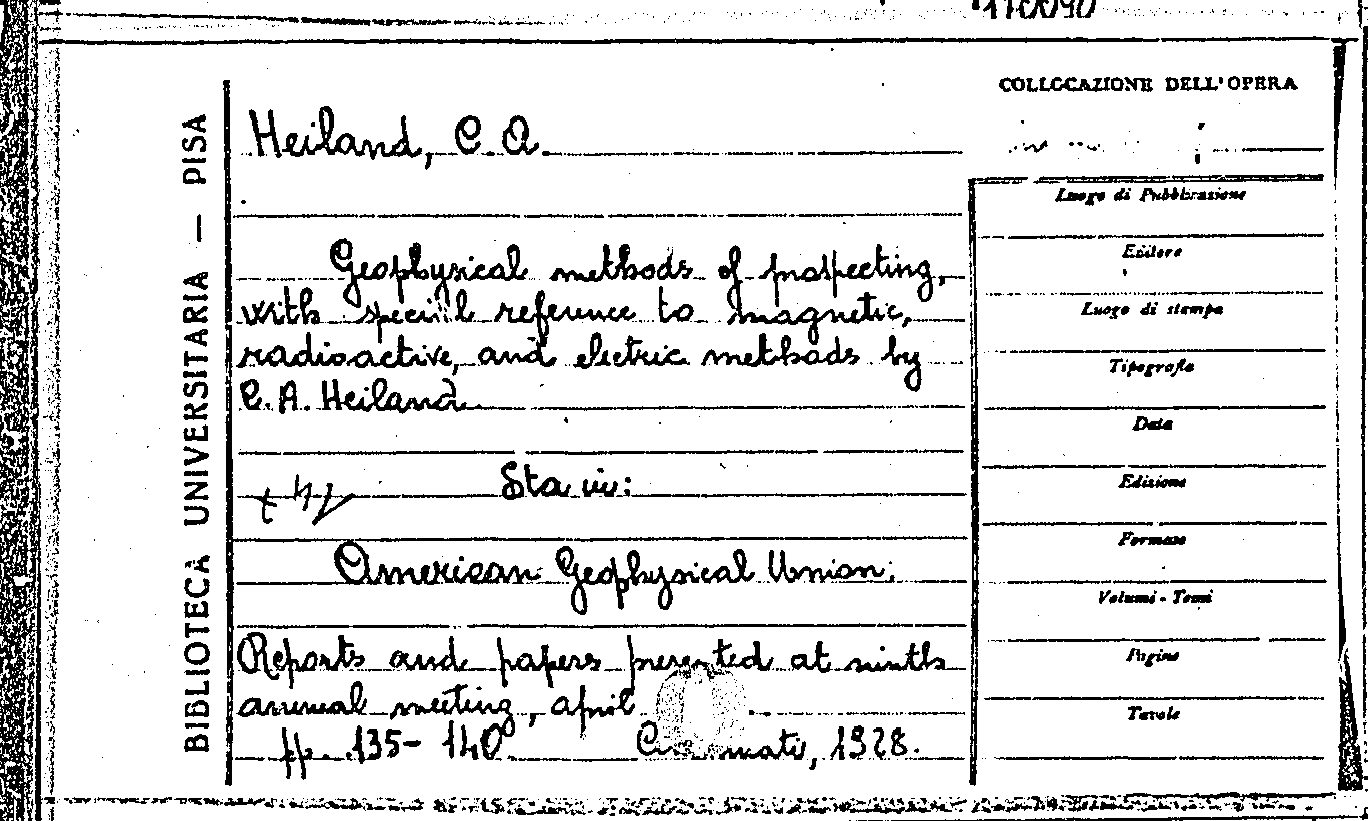 BIBLIOTECA UNIVERSITARIA — PISA
COLLOCAZIONE DELL'OPERA
Heiland, C. A.
Geophysical methods of prospecting,
with special reference to magnetic,
radioactive, and electric methods by
C. A. Heiland.
Sta in:
American Geophysical Union.
Reports and papers presented at ninth
annual meeting, april
pp. 135-140 1928.
Luogo di Pubblicazione
Editore
Luogo di stampa
Tipografia
Data
Edizione
Formato
Volumi - Tomi
Pagine
Tavole